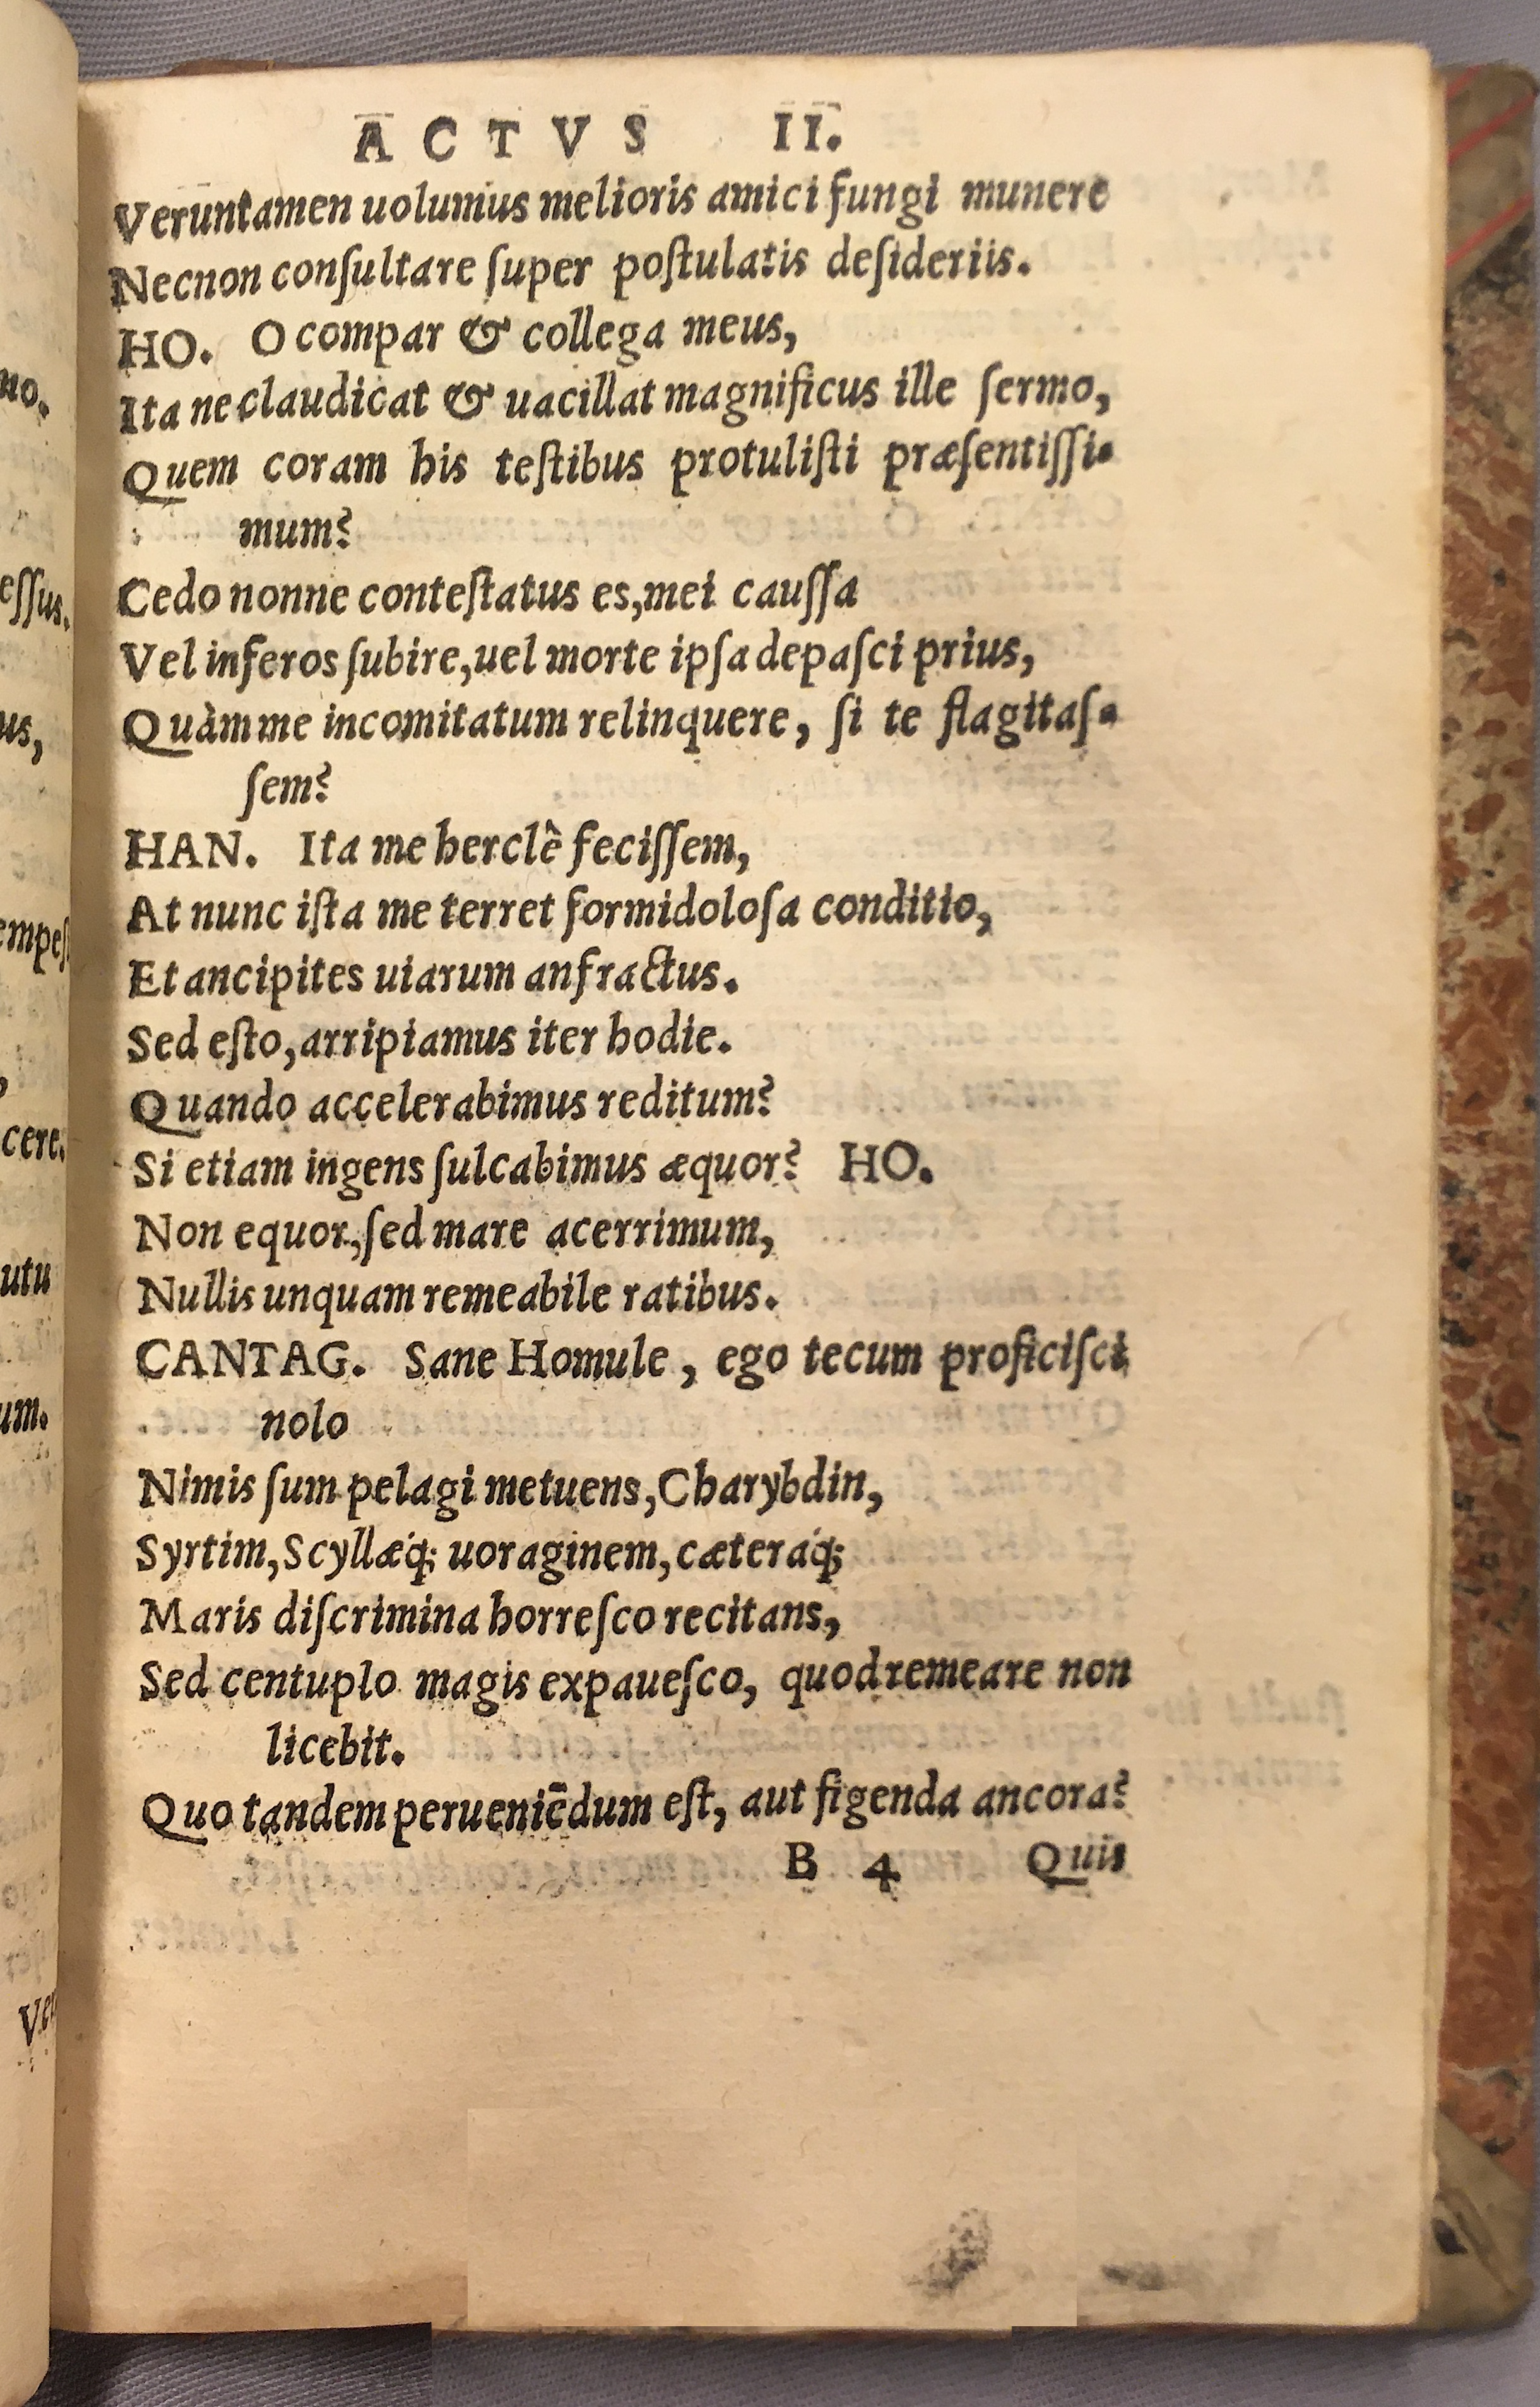 no.
essus.
us,
cere.
utu
um.
ACTVS II.
Veruntamen uolumus melioris amici fungi munere
Necnon conſultare ſuper poſtulatis deſideriis.
HO. O compar & collega meus,
Ita ne claudicat & uacillat magnificus ille ſermo,
Quem coram his teſtibus protuliſti præſentiſſi-
mum?
Cedo nonne conteſtatus es, mei cauſſa
Vel inferos ſubire, uel morte ipſa depaſci prius,
Quàm me incomitatum relinquere, ſi te flagitaſ-
ſem?
HAN. Ita me herclè feciſſem,
At nunc iſta me terret formidoloſa conditio,
Et ancipites uiarum anfractus.
Sed eſto, arripiamus iter hodie.
Quando accelerabimus reditum?
Si etiam ingens ſulcabimus æquor? HO.
Non equor, ſed mare acerrimum,
Nullis unquam remeabile ratibus.
CANTAG. Sane Homule, ego tecum proficiſci
nolo
Nimis ſum pelagi metuens, Charybdin,
Syrtim, Scyllæq́; uoraginem, cæteraq́;
Maris diſcrimina horreſco recitans,
Sed centuplo magis expaueſco, quod remeare non
licebit.
Quo tandem perueniēdum eſt, aut figenda ancora?
B 4 Quis